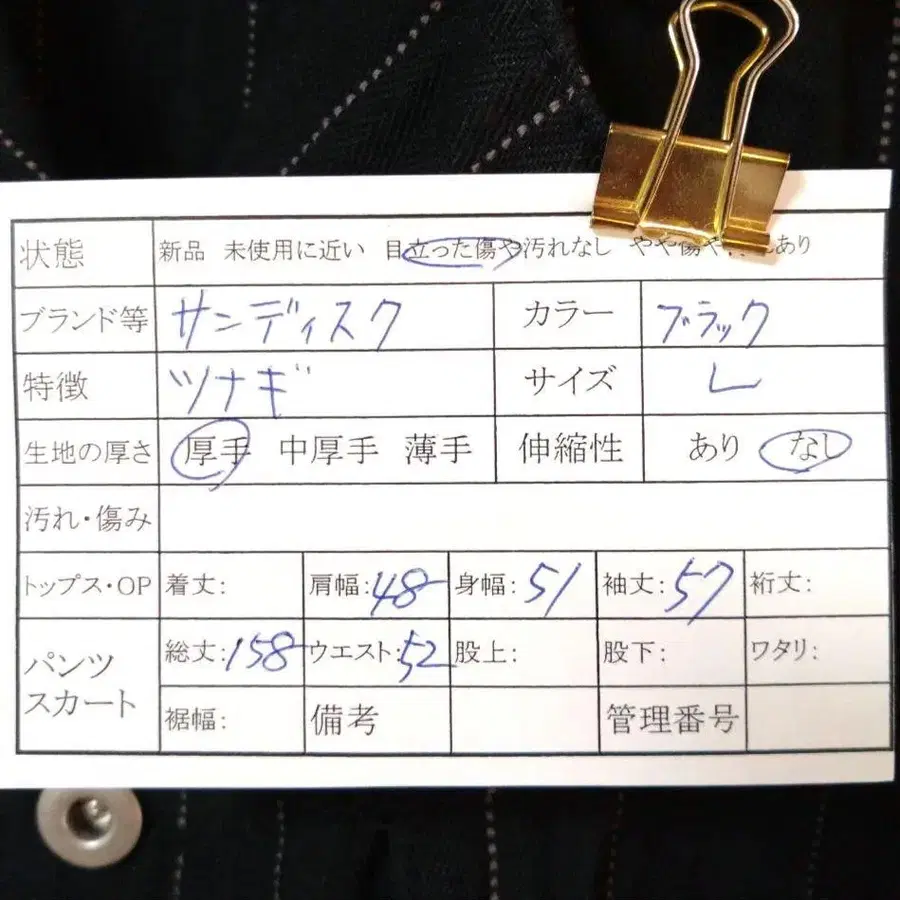 状態 新品 未使用に近い 目立った傷や汚れなし やや傷や あり
ブランド等 サンディスク カラー ブラック
特徴 ツナギ サイズ L
生地の厚さ 厚手 中厚手 薄手 伸縮性 あり なし
汚れ・傷み
トップス・OP 着丈: 肩幅:48 身幅:51 袖丈:57 裄丈:
パンツ スカート 総丈:158 ウエスト:52 股上: 股下: ワタリ:
裾幅: 備考 管理番号